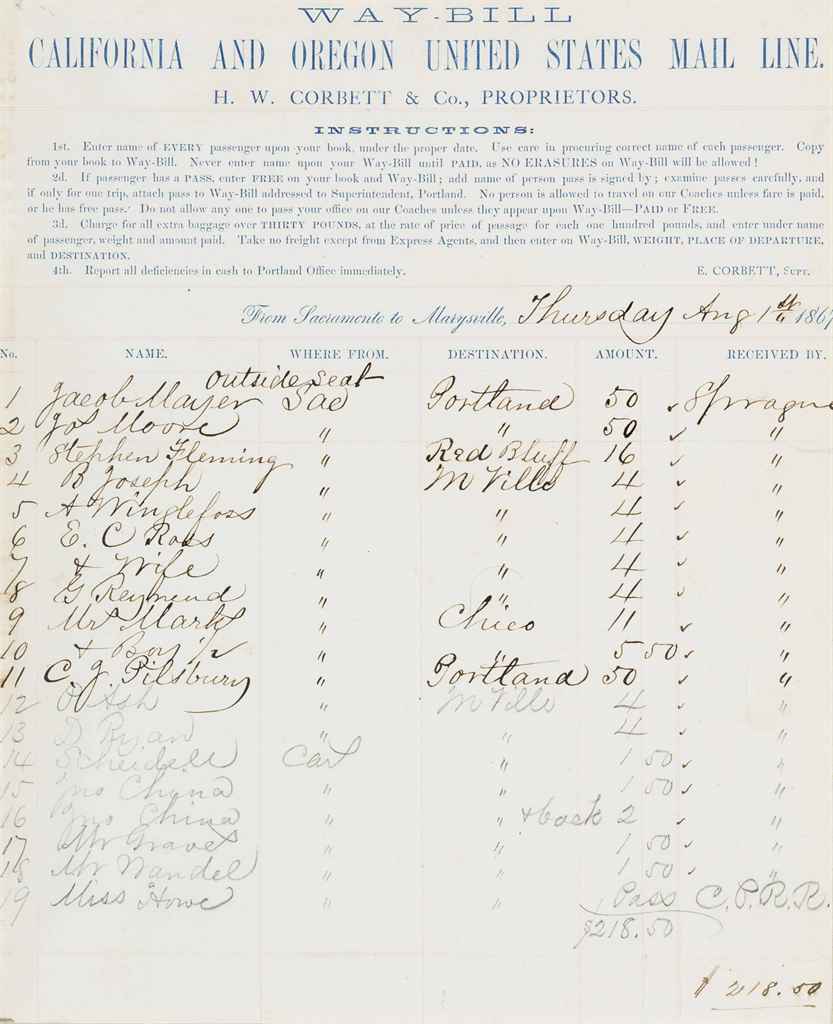 WAY-BILL
CALIFORNIA AND OREGON UNITED STATES MAIL LINE.
H. W. CORBETT & Co., PROPRIETORS.
INSTRUCTIONS:
1st. Enter name of EVERY passenger upon your book, under the proper date. Use care in procuring correct name of each passenger. Copy
from your book to Way-Bill. Never enter name upon your Way-Bill until PAID, as NO ERASURES on Way-Bill will be allowed!
2d. If passenger has a PASS, enter FREE on your book and Way-Bill; add name of person pass is signed by; examine passes carefully, and
if only for one trip, attach pass to Way-Bill addressed to Superintendent, Portland. No person is allowed to travel on our Coaches unless fare is paid,
or he has free pass. Do not allow any one to pass your office on our Coaches unless they appear upon Way-Bill—PAID or FREE.
3d. Charge for all extra baggage over THIRTY POUNDS, at the rate of price of passage for each one hundred pounds, and enter under name
of passenger, weight and amount paid. Take no freight except from Express Agents, and then enter on Way-Bill, WEIGHT, PLACE OF DEPARTURE,
and DESTINATION.
4th. Report all deficiencies in cash to Portland Office immediately. E. CORBETT, Supt.
From Sacramento to Marysville, Thursday Aug 1st 1867
No. NAME. WHERE FROM. DESTINATION. AMOUNT. RECEIVED BY.
outside seat
1 Jacob Mayer Sac Portland 50 ✓ Sprague
2 Jos Moore " " 50 ✓ "
3 Stephen Fleming " Red Bluff 16 ✓ "
4 B Joseph " M Ville 4 ✓ "
5 A Winglefoss " " 4 ✓ "
6 E. C Ross " " 4 ✓ "
7 & Wife " " 4 ✓ "
8 G Reymend " " 4 ✓ "
9 Mrs Mark " Chico 11 ✓ "
10 & Boy 1/2 " " 5 50 ✓ "
11 C. J. Pilsbury " Portland 50 ✓ "
12 Ash " M Ville 4 ✓ "
13 D Ryan " " 4 ✓ "
14 Scheidell Cal " 1 50 ✓ "
15 Jno China " " 1 50 ✓ "
16 Jno China " " & back 2 ✓ "
17 Mr Graves " " 1 50 ✓ "
18 Mr Nandel " " 1 50 ✓ "
19 Miss Howe " " Pass C. P. R. R.
$218.50
$ 218.50